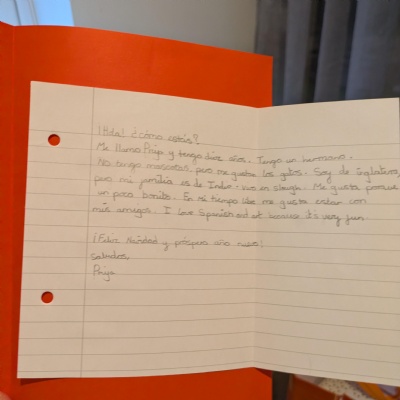 ¡Hola! ¿Cómo estás?
Me llamo Priya y tengo diez años. Tengo un hermano.
No tengo mascotas, pero me gusta los gatos. Soy de Inglaterra,
pero mi familia es de India. vivo en slough. Me gusta porque
un poco bonito. En mi tiempo libre me gusta estar con
mis amigos. I love Spanish and art because it's very fun.
¡Feliz Navidad y próspero año nuevo!
saludos,
Priya